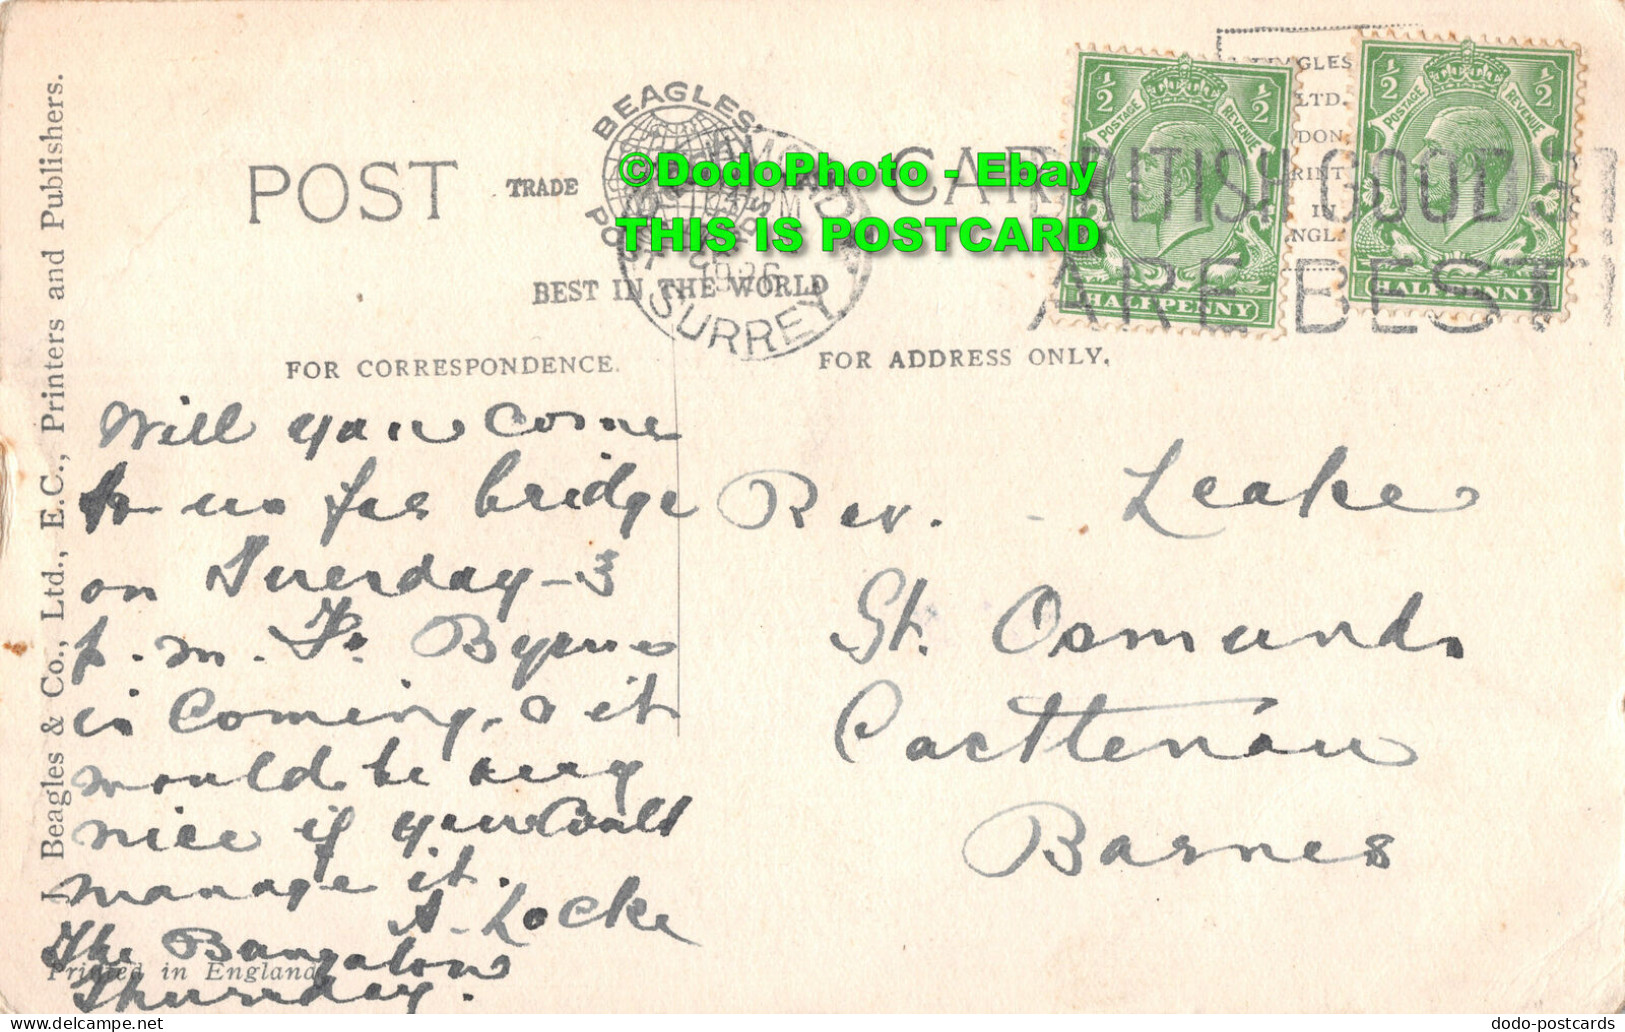 POST CARD
BEAGLES'
TRADE
POST
BEST IN THE WORLD
RICHMOND
SURREY
1926
©DodoPhoto - Ebay
THIS IS POSTCARD
BRITISH GOODS
ARE BEST
POSTAGE REVENUE
½ ½
HALFPENNY
POSTAGE REVENUE
½ ½
HALFPENNY
LTD.
PRINT
IN
ENGL.
FOR CORRESPONDENCE.
FOR ADDRESS ONLY.
J. Beagles & Co., Ltd., E.C., Printers and Publishers.
Will you come
to us for bridge
on Tuesday - 3
p.m. Fr. Byrne
is coming, & it
would be very
nice if you could
manage it.
A. Locke
The Bungalow
Thursday.
Printed in England
Rev. Leake
St. Osmunds
Castlenau
Barnes
dodo-postcards